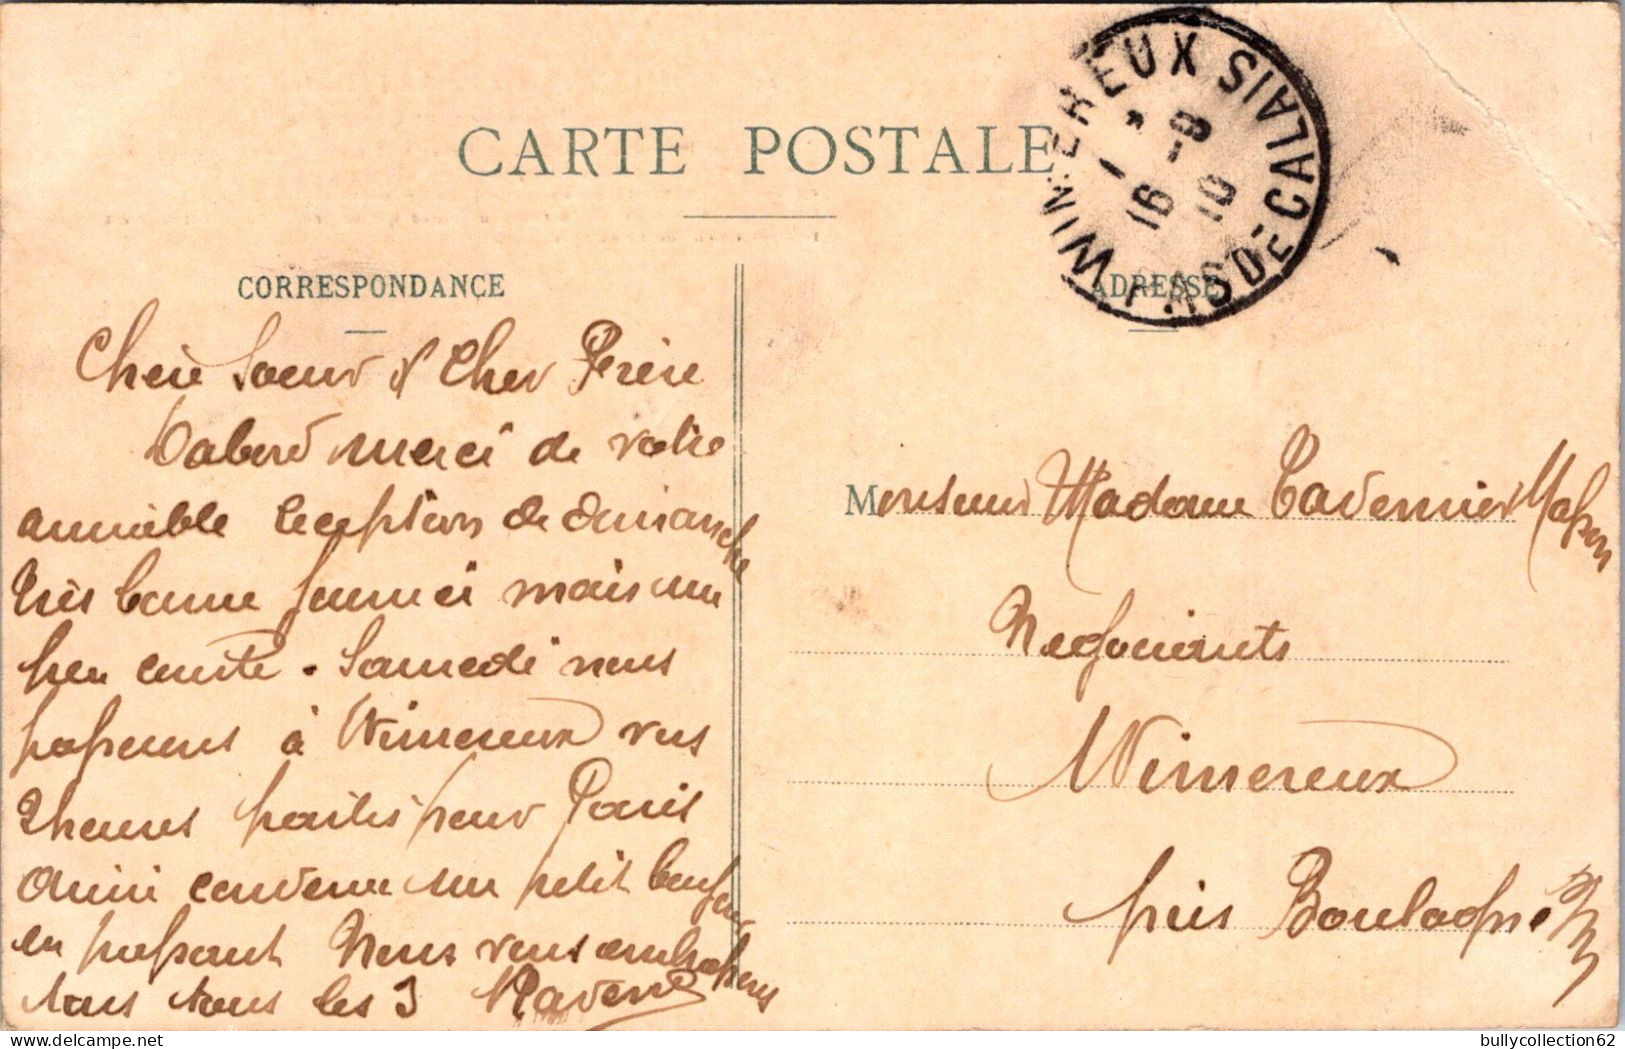 CARTE POSTALE
WIMEREUX PAS-DE-CALAIS
16 -8
10
CORRESPONDANCE
Chère Soeur & Cher Frère
Dabord merci de votre
aimable reception de dimanche
très bonne journéi mais un
peu courte. Samedi nous
passerons à Wimereux vers
2 heures partis pour Paris
Ainsi convenu un petit bonjour
en passant Nous vous embrassons
tous tous les 3
ADRESSE
Monsieur Madame Tavernier
Negociants
Wimereux
près Boulogne s/m
bullycollection62